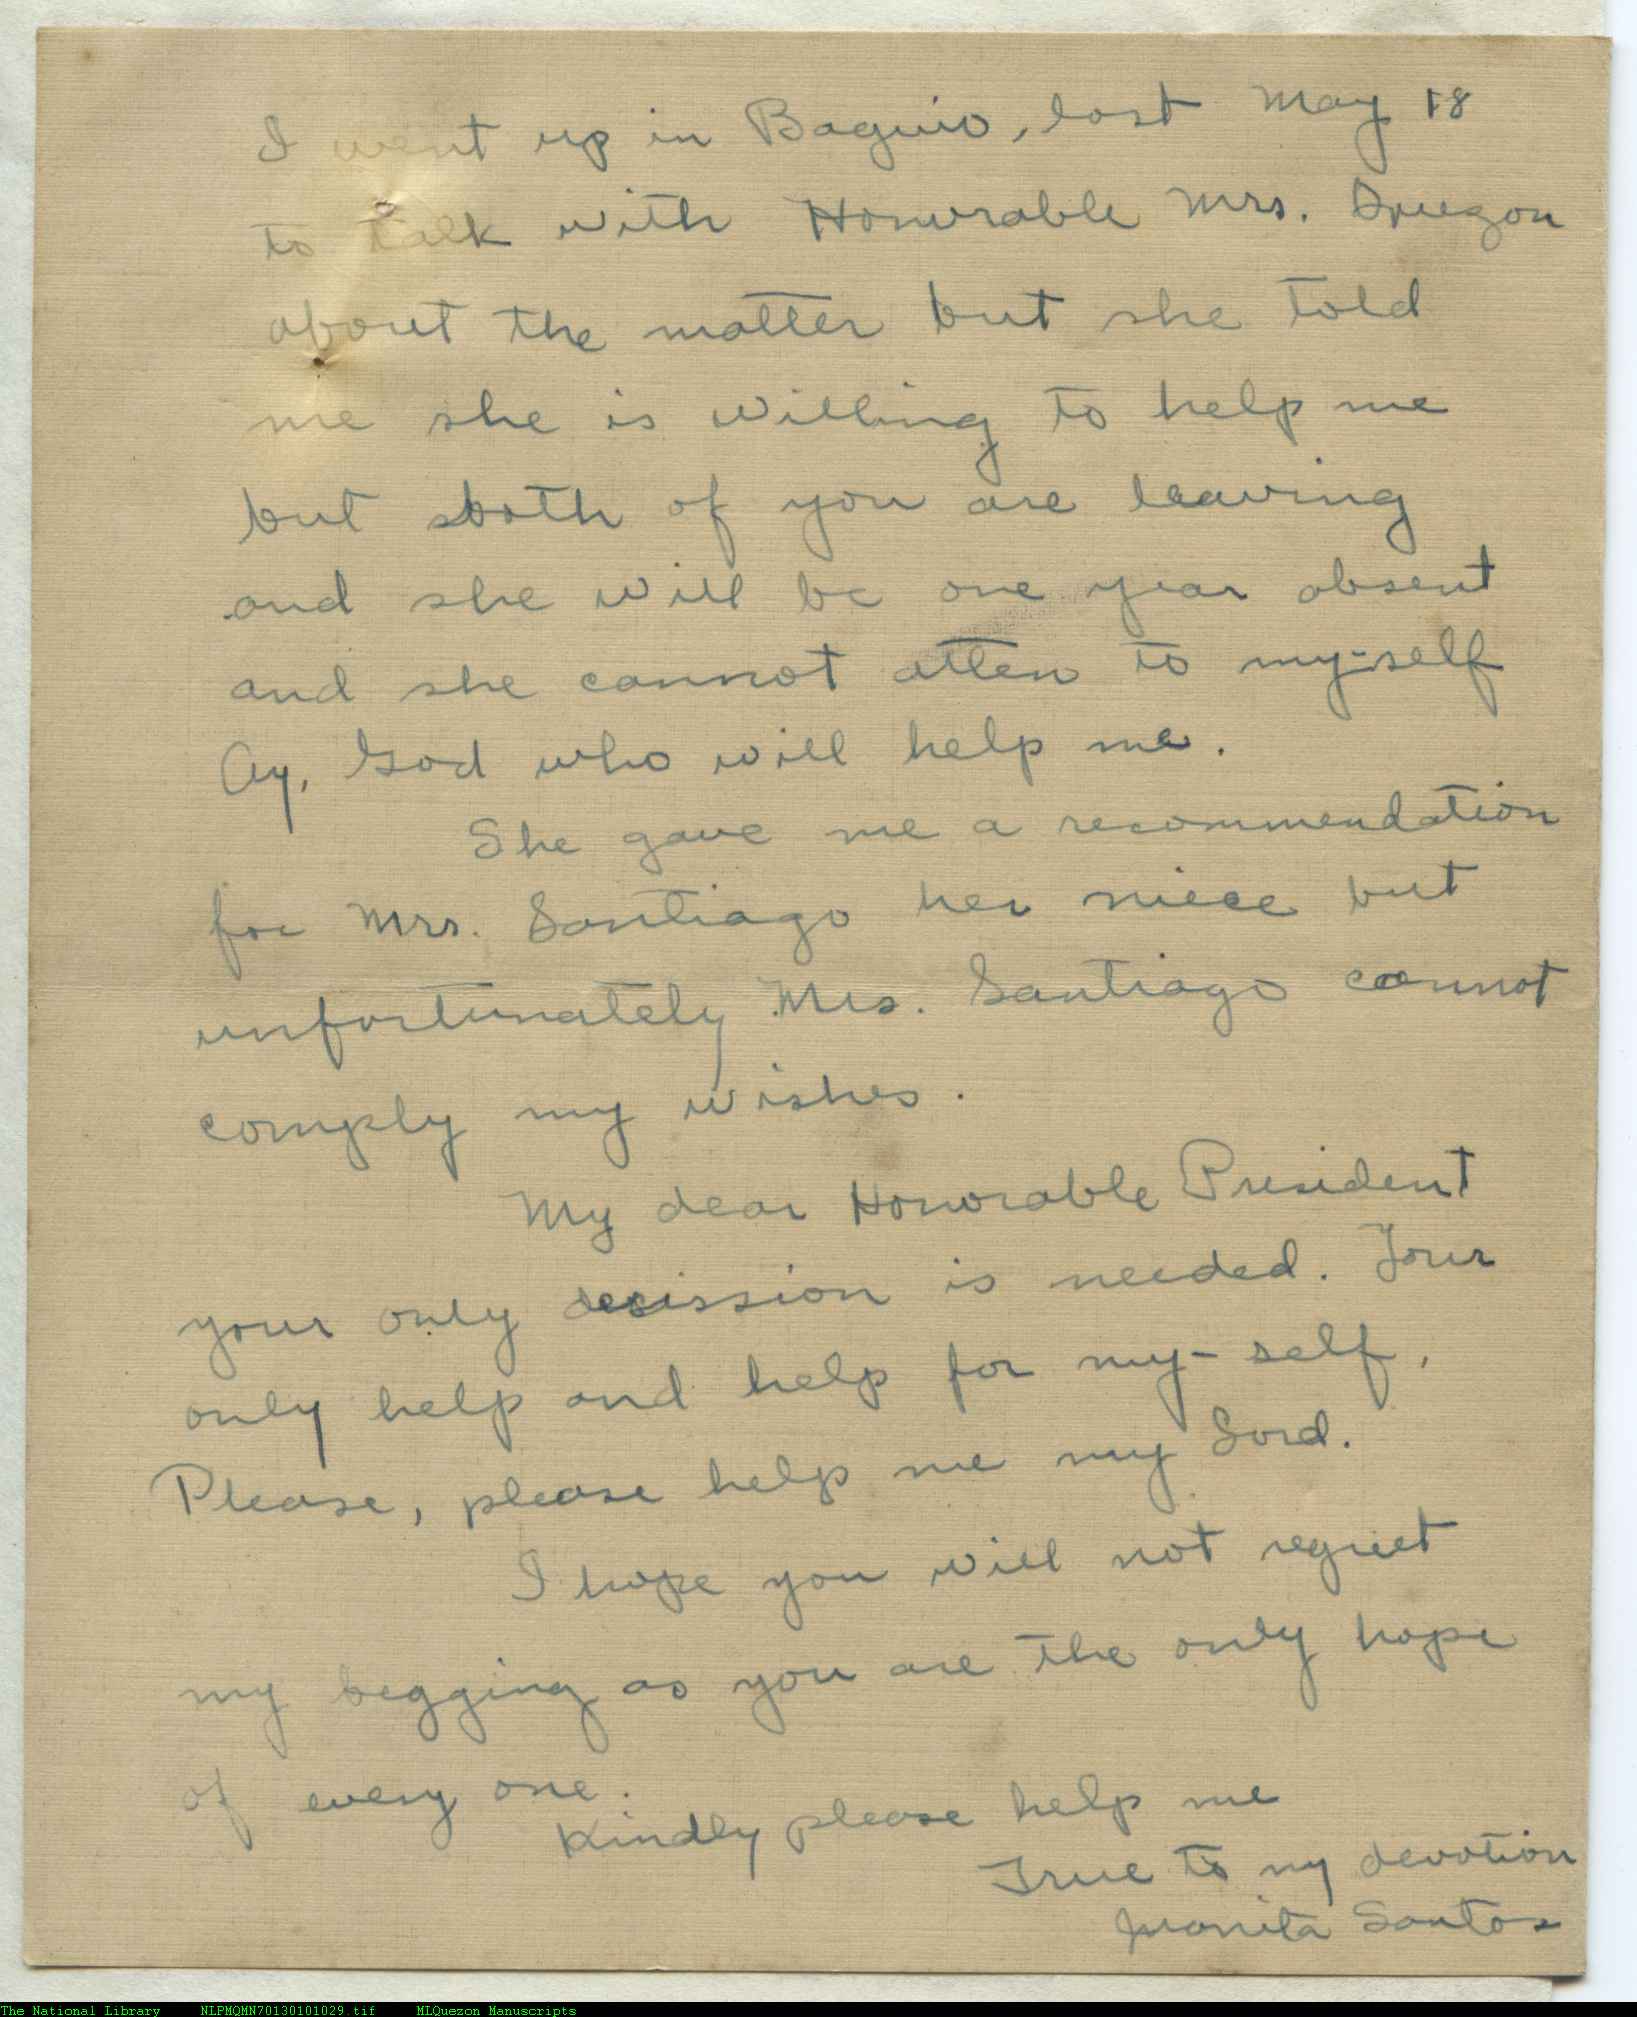 I went up in Baguio, last May 18
to talk with Honorable Mrs. Quezon
about the matter but she told
me she is willing to help me
but both of you are leaving
and she will be one year absent
and she cannot atten to my-self
Ay, God who will help me.
She gave me a recommendation
for Mrs. Santiago her niece but
unfortunately Mrs. Santiago cannot
comply my wishes.
My dear Honorable President
your only decission is needed. Your
only help and help for my-self,
Please, please help me my Lord.
I hope you will not regret
my begging as you are the only hope
of every one.
Kindly please help me
True to my devotion
Juanita Santos
The National Library NLPMQMN70130101029.tif MLQuezon Manuscripts